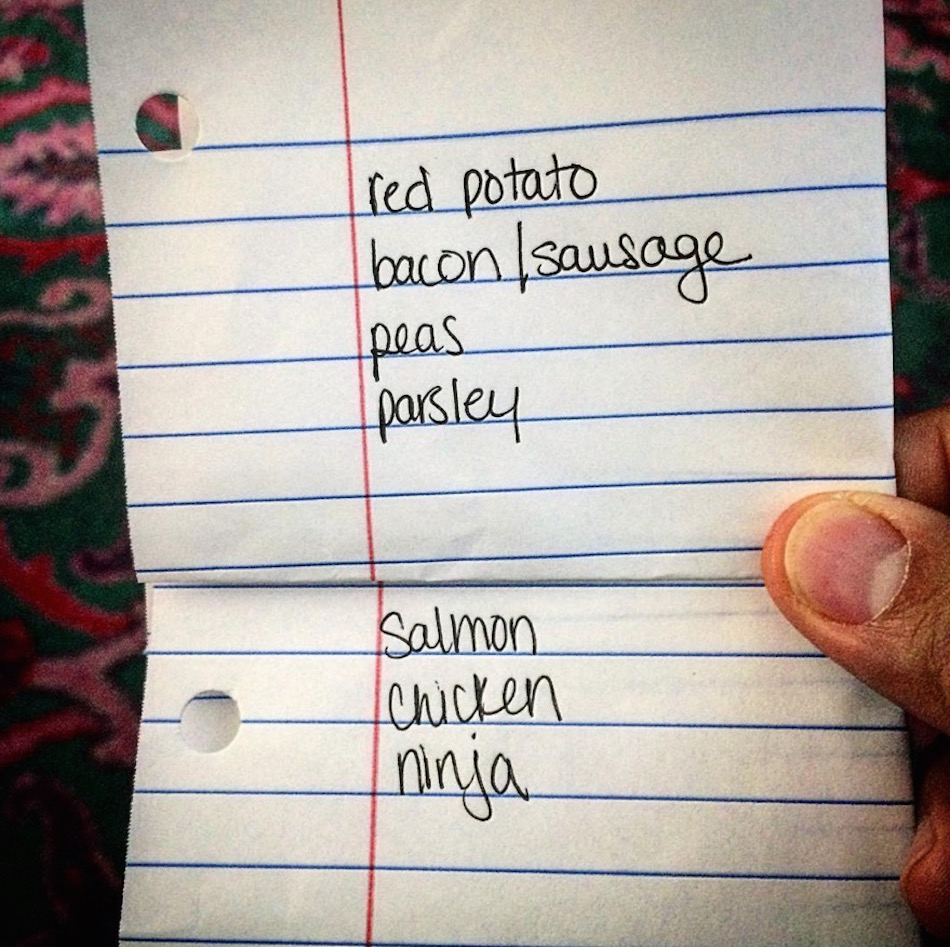 red potato
bacon/sausage
peas
parsley
Salmon
chicken
ninja